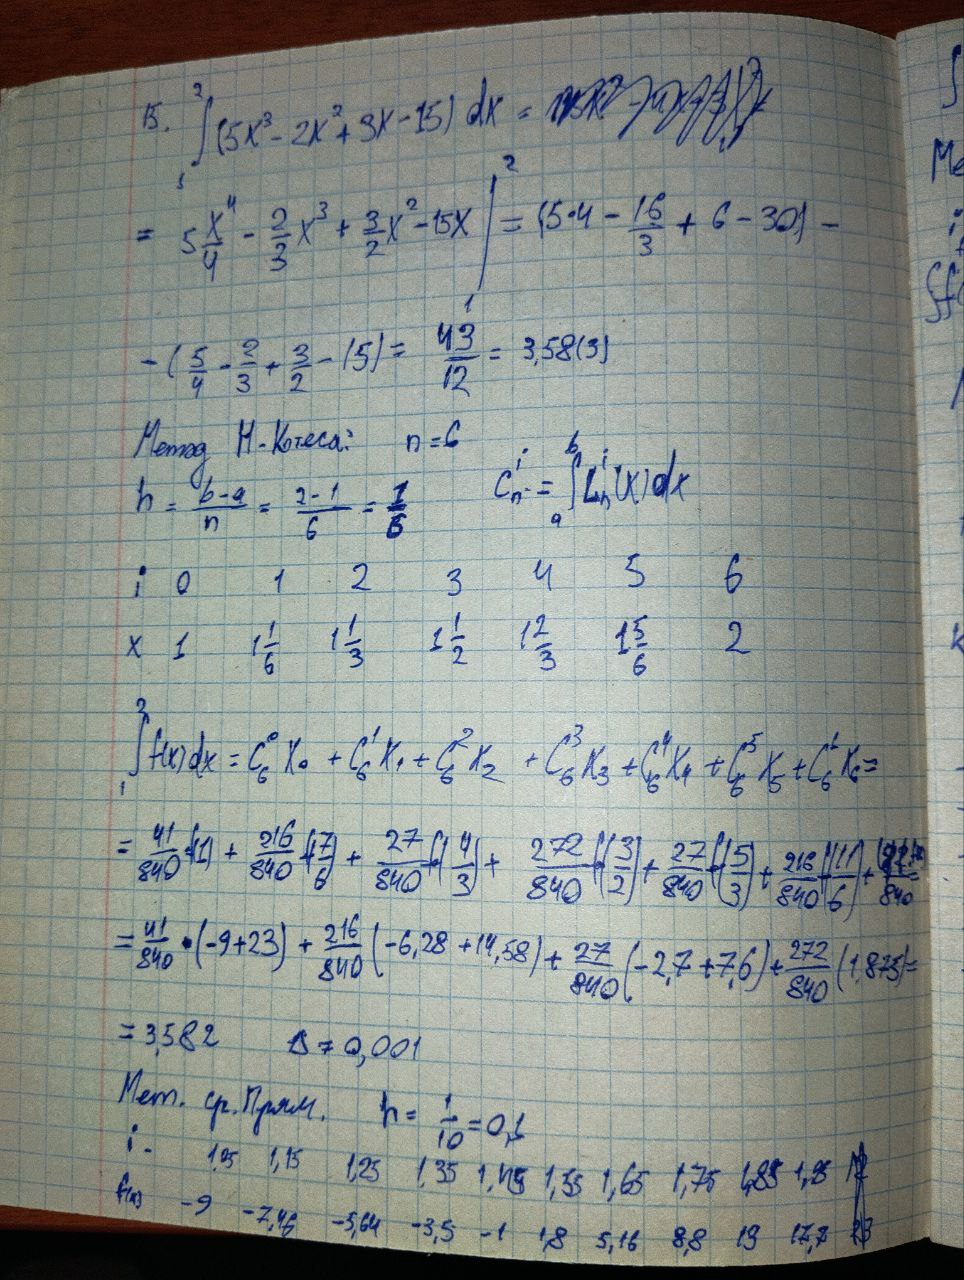 15. ∫₁² (5x³ - 2x² + 3x - 15) dx =
= 5 x⁴/4 - 2/3 x³ + 3/2 x² - 15x |₁² = (5·4 - 16/3 + 6 - 30) -
- (5/4 - 2/3 + 3/2 - 15) = 43/12 = 3,58(3)
Метод Н-Котеса: n = 6
h = b-a/n = 2-1/6 = 1/6 Cₙⁱ = ∫ₐᵇ Lₙⁱ(x)dx
i 0 1 2 3 4 5 6
x 1 1 1/6 1 1/3 1 1/2 1 2/3 1 5/6 2
∫₁² f(x)dx = C₆⁰X₀ + C₆¹X₁ + C₆²X₂ + C₆³X₃ + C₆⁴X₄ + C₆⁵X₅ + C₆ X₆ =
= 41/840 f(1) + 216/840 f(7/6) + 27/840 f(4/3) + 272/840 f(3/2) + 27/840 f(5/3) + 216/840 f(11/6) +
= 41/840 · (-9+23) + 216/840 (-6,28 + 14,58) + 27/840 (-2,7 + 7,6) + 272/840 (1,875) =
= 3,582 Δ = 0,001
Мет. ср. Прям. h = 1/10 = 0,1
i 1,05 1,15 1,25 1,35 1,45 1,55 1,65 1,75 1,85 1,95
f(x) -9 -7,46 -5,64 -3,5 -1 1,8 5,16 8,8 13 17,7